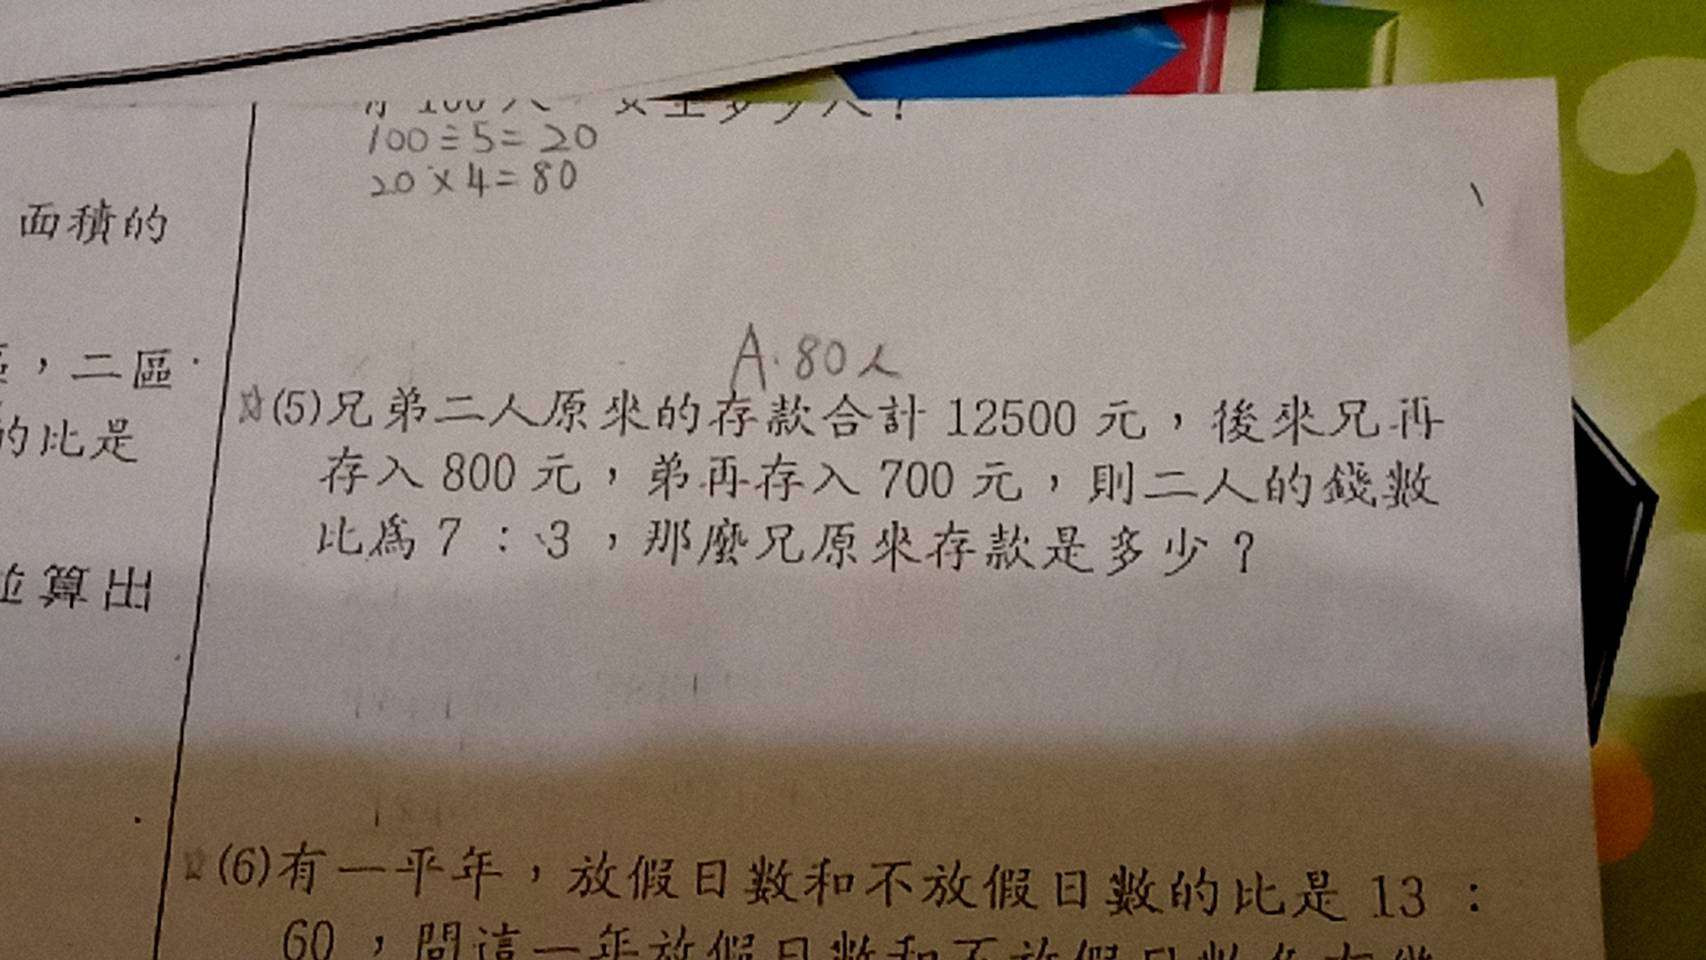 100÷5=20
20×4=80
面積的
，二區
的比是
並算出
A.80人
(5)兄弟二人原來的存款合計 12500 元，後來兄再
存入 800 元，弟再存入 700 元，則二人的錢數
比為 7 : 3，那麼兄原來存款是多少？
(6)有一平年，放假日數和不放假日數的比是 13 :
60，問這一年放假日數和不放假日數各有幾